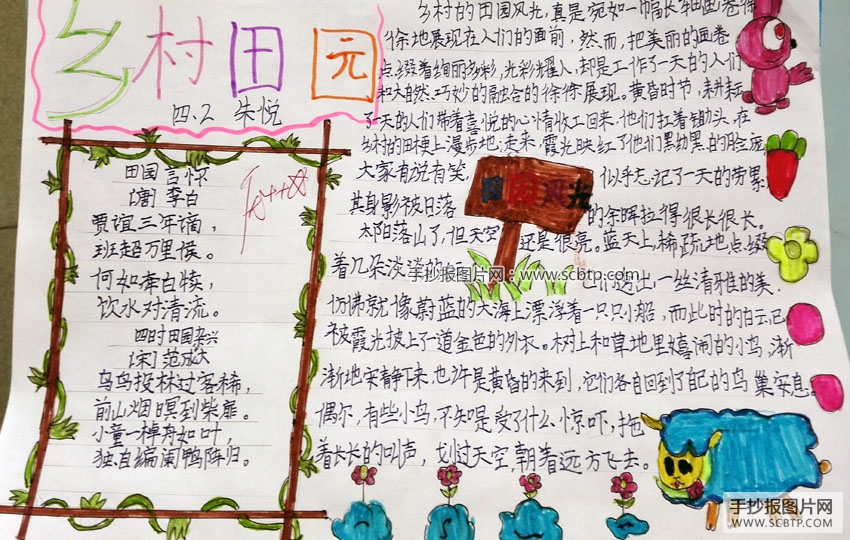 乡村田园
四.2 朱悦
田园言怀
〔唐〕李白
贾谊三年谪,
班超万里侯。
何如牵白犊,
饮水对清流。
四时田园杂兴
〔宋〕范成大
乌鸟投林过客稀,
前山烟暝到柴扉。
小童一棹舟如叶,
独自编阑鸭阵归。
乡村的田园风光,真是宛如一幅长轴画卷徐
徐地展现在人们的面前.然而,把美丽的画卷
点缀着绚丽多彩,光彩耀人,却是工作了一天的人们
和大自然巧妙的融合的徐徐展现。黄昏时节,耕耘
了一天的人们带着喜悦的心情收工回来,他们扛着锄头,在
乡村的田埂上漫步地走来,霞光映红了他们黑黝黑的脸庞
大家有说有笑, 似乎忘记了一天的劳累
田园风光
其身影被日落 的余晖拉得很长很长。
太阳落山了,但天空还是很亮。蓝天上,稀疏地点缀
着几朵淡淡的 它们透出一丝清雅的美,
手抄报图片网:www.scbtp.com
仿佛就像蔚蓝的大海上漂浮着一只只小船,而此时的白云已
被霞光披上了一道金色的外衣。树上和草地里嬉闹的小鸟,渐
渐地安静下来.也许是黄昏的来到,它们各自回到了自己的鸟巢实息。
偶尔,有些小鸟,不知是受了什么惊吓,拖
着长长的叫声,划过天空,朝着远方飞去。
手抄报图片网
WWW.SCBTP.COM